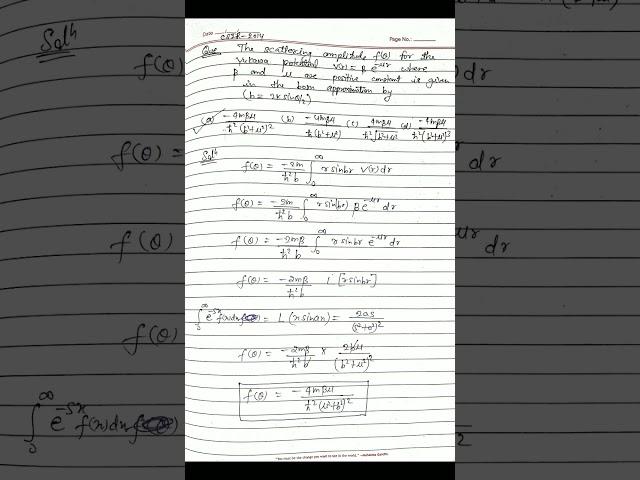 Date
CSIR-2014
Page No.:
Que The scattering amplitude f(θ) for the
Yukawa potential V(r) = β e^-μr where
β and μ are positive constant is given
in the born approximation by
(b = 2k sinθ/2)
(a) -4mβμ/ħ²(b²+μ²)² (b) -4mβμ/ħ²(b²+μ²) (c) 4mβμ/ħ²√b²+μ² (d) -4mβμ/ħ²(b²+μ²)³
Solⁿ
f(θ) = -2m/ħ²b ∫₀^∞ r sinbr V(r) dr
f(θ) = -2m/ħ²b ∫₀^∞ r sin(br) β e^-μr dr
f(θ) = -2mβ/ħ²b ∫₀^∞ r sinbr e^-μr dr
f(θ) = -2mβ/ħ²b L [r sinbr]
∫₀^∞ e^-sx f(x)dx = L (x sinax) = 2as/(s²+a²)²
f(θ) = -2mβ/ħ²b × 2bμ/(b²+μ²)²
f(θ) = -4mβμ/ħ²(μ²+b²)²
"You must be the change you want to see in the world." -Mahatma Gandhi
Solⁿ
f(θ)
f(θ) =
f(θ)
f(θ)
∫₀^∞ e^-sx f(x)dx
dr
dr
μr dr
2